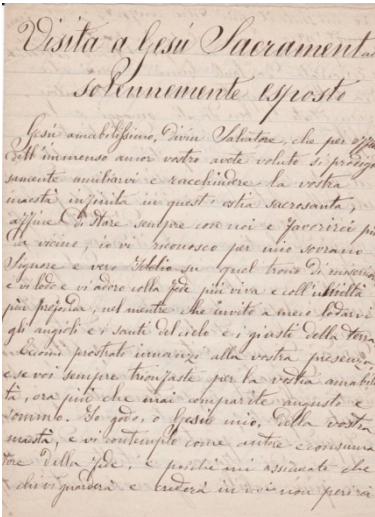 Visita a Gesù Sacramentato
solennemente esposto
Gesù amabilissimo, Divin Salvatore, che per
dell'immenso amor vostro avete voluto sì prodigio
samente umiliarvi e racchiudere la vostra
maestà infinita in quest'ostia sacrosanta,
affine di stare sempre con noi e favorirci più
da vicino, io vi riconosco per mio sovrano
Signore e vero Iddio su quel trono di misericordia
e vi lodo e vi adoro colla fede più viva e coll'umiltà
più profonda, nel mentre che invito a meco lodarvi
gli angioli e i santi del cielo e i giusti della terra
Eccomi prostrato innanzi alla vostra presenza
e se voi sempre trionfaste per la vostra amabili
tà, ora più che mai comparite augusto e
sommo. Io godo, o Gesù mio, della vostra
maestà, e vi contemplo come autore e consuma
tore della fede, e poichè mi assicurate che
chi vi guarderà e crederà in voi non perirà